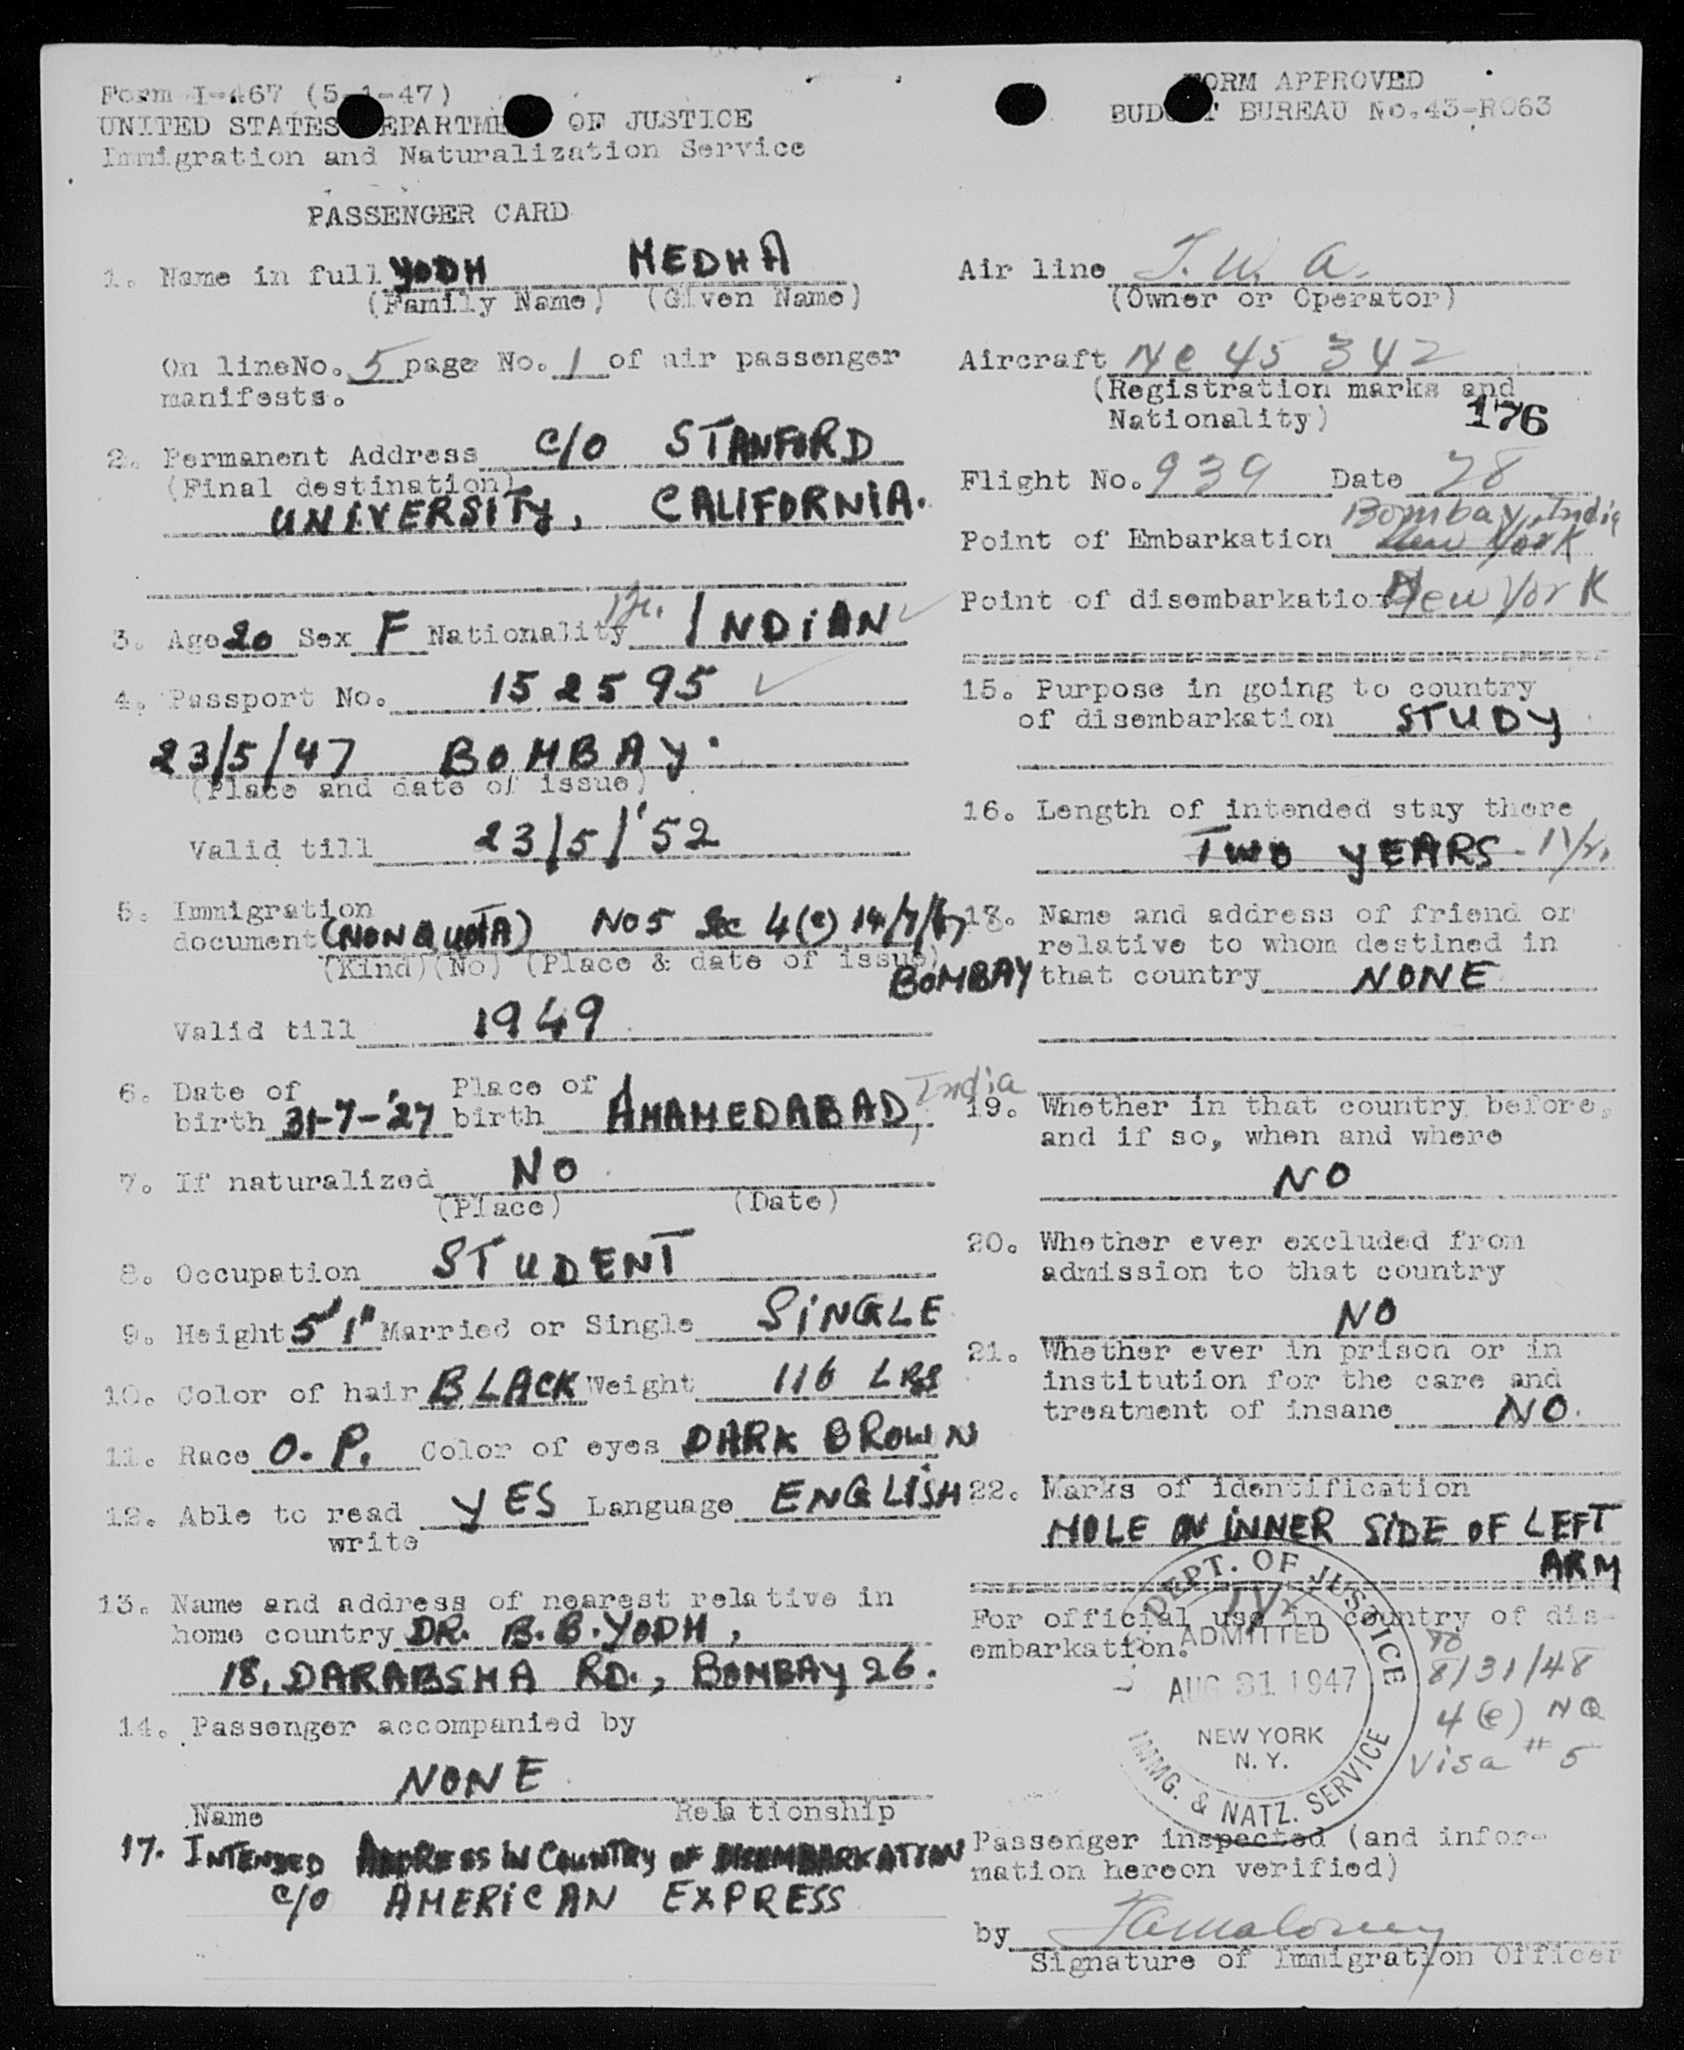 Form I-467 (5-1-47)
UNITED STATES DEPARTMENT OF JUSTICE
Immigration and Naturalization Service
PASSENGER CARD
1. Name in full YODH MEDHA
(Family Name) (Given Name)
On line No. 5 page No. 1 of air passenger
manifests.
2. Permanent Address C/O STANFORD
(Final destination)
UNIVERSITY, CALIFORNIA.
3. Age 20 Sex F Nationality INDIAN
4. Passport No. 152595
23/5/47 BOMBAY.
(Place and date of issue)
Valid till 23/5/'52
5. Immigration
document (NON QUOTA) No 5 Sec 4(e) 14/7/47
(Kind) (No) (Place & date of issue)
BOMBAY
Valid till 1949
6. Date of Place of
birth 31-7-'27 birth AHAMEDABAD, India
7. If naturalized NO
(Place) (Date)
8. Occupation STUDENT
9. Height 5'1" Married or Single SINGLE
10. Color of hair BLACK Weight 116 LBS
11. Race O.P. Color of eyes DARK BROWN
12. Able to read YES Language ENGLISH
write
13. Name and address of nearest relative in
home country DR. B.B. YODH,
18, DARABSHA RD., BOMBAY 26.
14. Passenger accompanied by
NONE
Name Relationship
17. INTENDED ADDRESS IN COUNTRY OF DISEMBARKATION
C/O AMERICAN EXPRESS
FORM APPROVED
BUDGET BUREAU No. 43-R063
Air line T. W. A.
(Owner or Operator)
Aircraft Nc 45 342
(Registration marks and
Nationality) 176
Flight No. 939 Date 28
Bombay, India
Point of Embarkation New York
Point of disembarkation New York
15. Purpose in going to country
of disembarkation STUDY
16. Length of intended stay there
TWO YEARS. 1 Yr.
18. Name and address of friend or
relative to whom destined in
that country NONE
19. Whether in that country before,
and if so, when and where
NO
20. Whether ever excluded from
admission to that country
NO
21. Whether ever in prison or in
institution for the care and
treatment of insane NO.
22. Marks of identification
MOLE ON INNER SIDE OF LEFT
ARM
For official use in country of dis-
embarkation.
DEPT. OF JUSTICE
ADMITTED
AUG 31 1947
NEW YORK
N. Y.
IMMG. & NATZ. SERVICE
To
8/31/48
4(e) NQ
Visa # 5
Passenger inspected (and infor-
mation hereon verified)
by
Signature of Immigration Officer